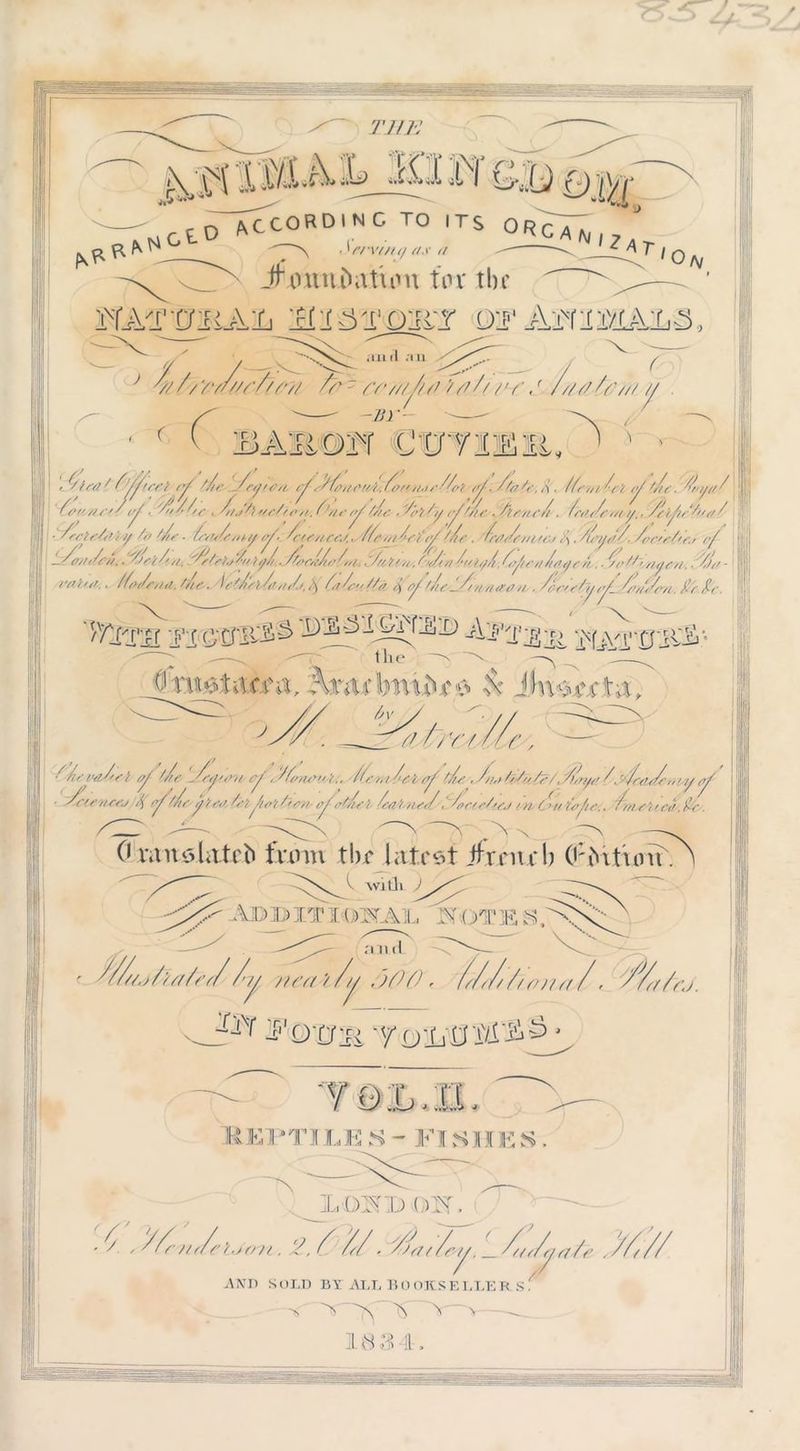 THE
ANIMAL KINGDOM,
ARRANGED ACCORDING TO ITS ORGANIZATION,
Serving as a
Foundation for the
NATURAL HISTORY OF ANIMALS,
and an
Introduction to comparative Anatomy.
—BY—
BARON CUVIER,
Great Officer of the Legion of Honour, Counsellor of State, & Member of the Royal
Council of Public Instruction, One of the Forty of the French Academy, Perpetual
Secretary to the Academy of Sciences, Member of the Academies & Royal Societies of
London, Berlin, Petersburgh, Stockholm, Turin, Edinburgh, Copenhagen, Gottingen, Ba-
varia, Modena, the Netherlands, & Calcutta & of the Linnæan Society of London, &c. &c.
WITH FIGURES DESIGNED AFTER NATURE:
the
Crustacea, Arachnides & Insecta,
by
M. Latreille,
Chevalier of the Legion of Honour, Member of the Institute / Royal / Academy of
Sciences / & of the greater portion of other learned Societies in Europe, America, &c.
Translated from the latest French Edition.
with
ADDITIONAL NOTES,
and
Illustrated by nearly 500 Additional Plates.
IN FOUR VOLUMES.
VOL. II.
REPTILES - FISHES.
LONDON.
G. Henderson. 2, Old Bailey. Ludgate Hill
AND SOLD BY ALL BOOKSELLERS.
1834.